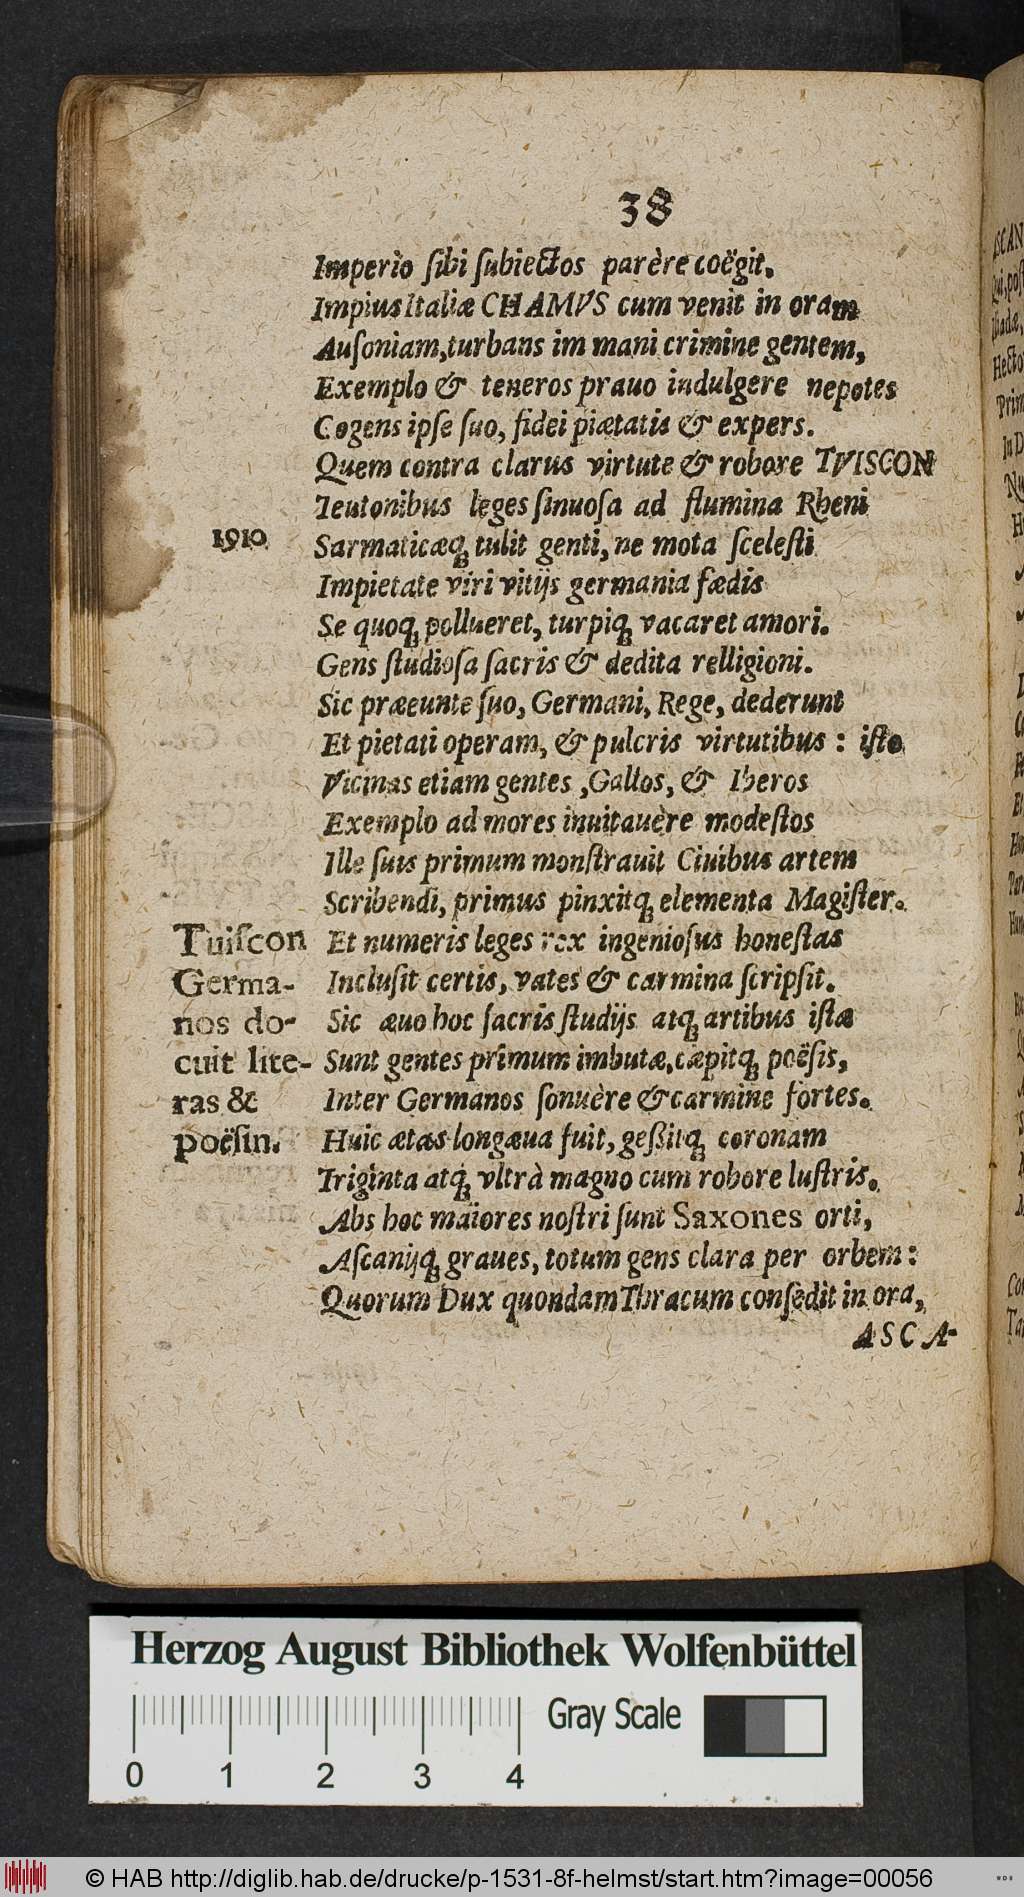 38
Imperìo ſibi ſubiectos parère coëgit.
Impius Italiæ CHAMVS cum venit in oram
Auſoniam, turbans im mani crimine gentem,
Exemplo & teneros prauo indulgere nepotes
Cogens ipſe ſuo, fidei piætatis & expers.
Quem contra clarus virtute & robore TVISCON
Teutonibus leges ſinuoſa ad flumina Rheni
1910 Sarmaticæq́; tulit genti, ne mota ſceleſti
Impietate viri vitijs germania fædis
Se quoq́; pollueret, turpiq́; vacaret amori.
Gens ſtudioſa ſacris & dedita relligioni.
Sic præeunte ſuo, Germani, Rege, dederunt
Et pietati operam, & pulcris virtutibus: iſto
Vicinas etiam gentes, Gallos, & Iberos
Exemplo ad mores inuitauère modeſtos
Ille ſuis primum monſtrauit Ciuibus artem
Scribendi, primus pinxitq́; elementa Magiſter.
Tuiſcon Et numeris leges rex ingenioſus honeſtas
Germa- Incluſit certis, vates & carmina ſcripſit.
nos do- Sic æuo hoc ſacris ſtudijs atq́; artibus iſtæ
cuit lite- Sunt gentes primum imbutæ, cæpitq́; poëſis,
ras & Inter Germanos ſonuère & carmine fortes.
poëſin. Huic ætas longæua fuit, geßitq́; coronam
Triginta atq́; vltrà magno cum robore luſtris.
Abs hoc maiores noſtri ſunt Saxones orti,
Aſcanijq́; graues, totum gens clara per orbem:
Quorum Dux quondam Thracum conſedit in ora,
ASCA-
Herzog August Bibliothek Wolfenbüttel
Gray Scale
0 1 2 3 4
© HAB http://diglib.hab.de/drucke/p-1531-8f-helmst/start.htm?image=00056